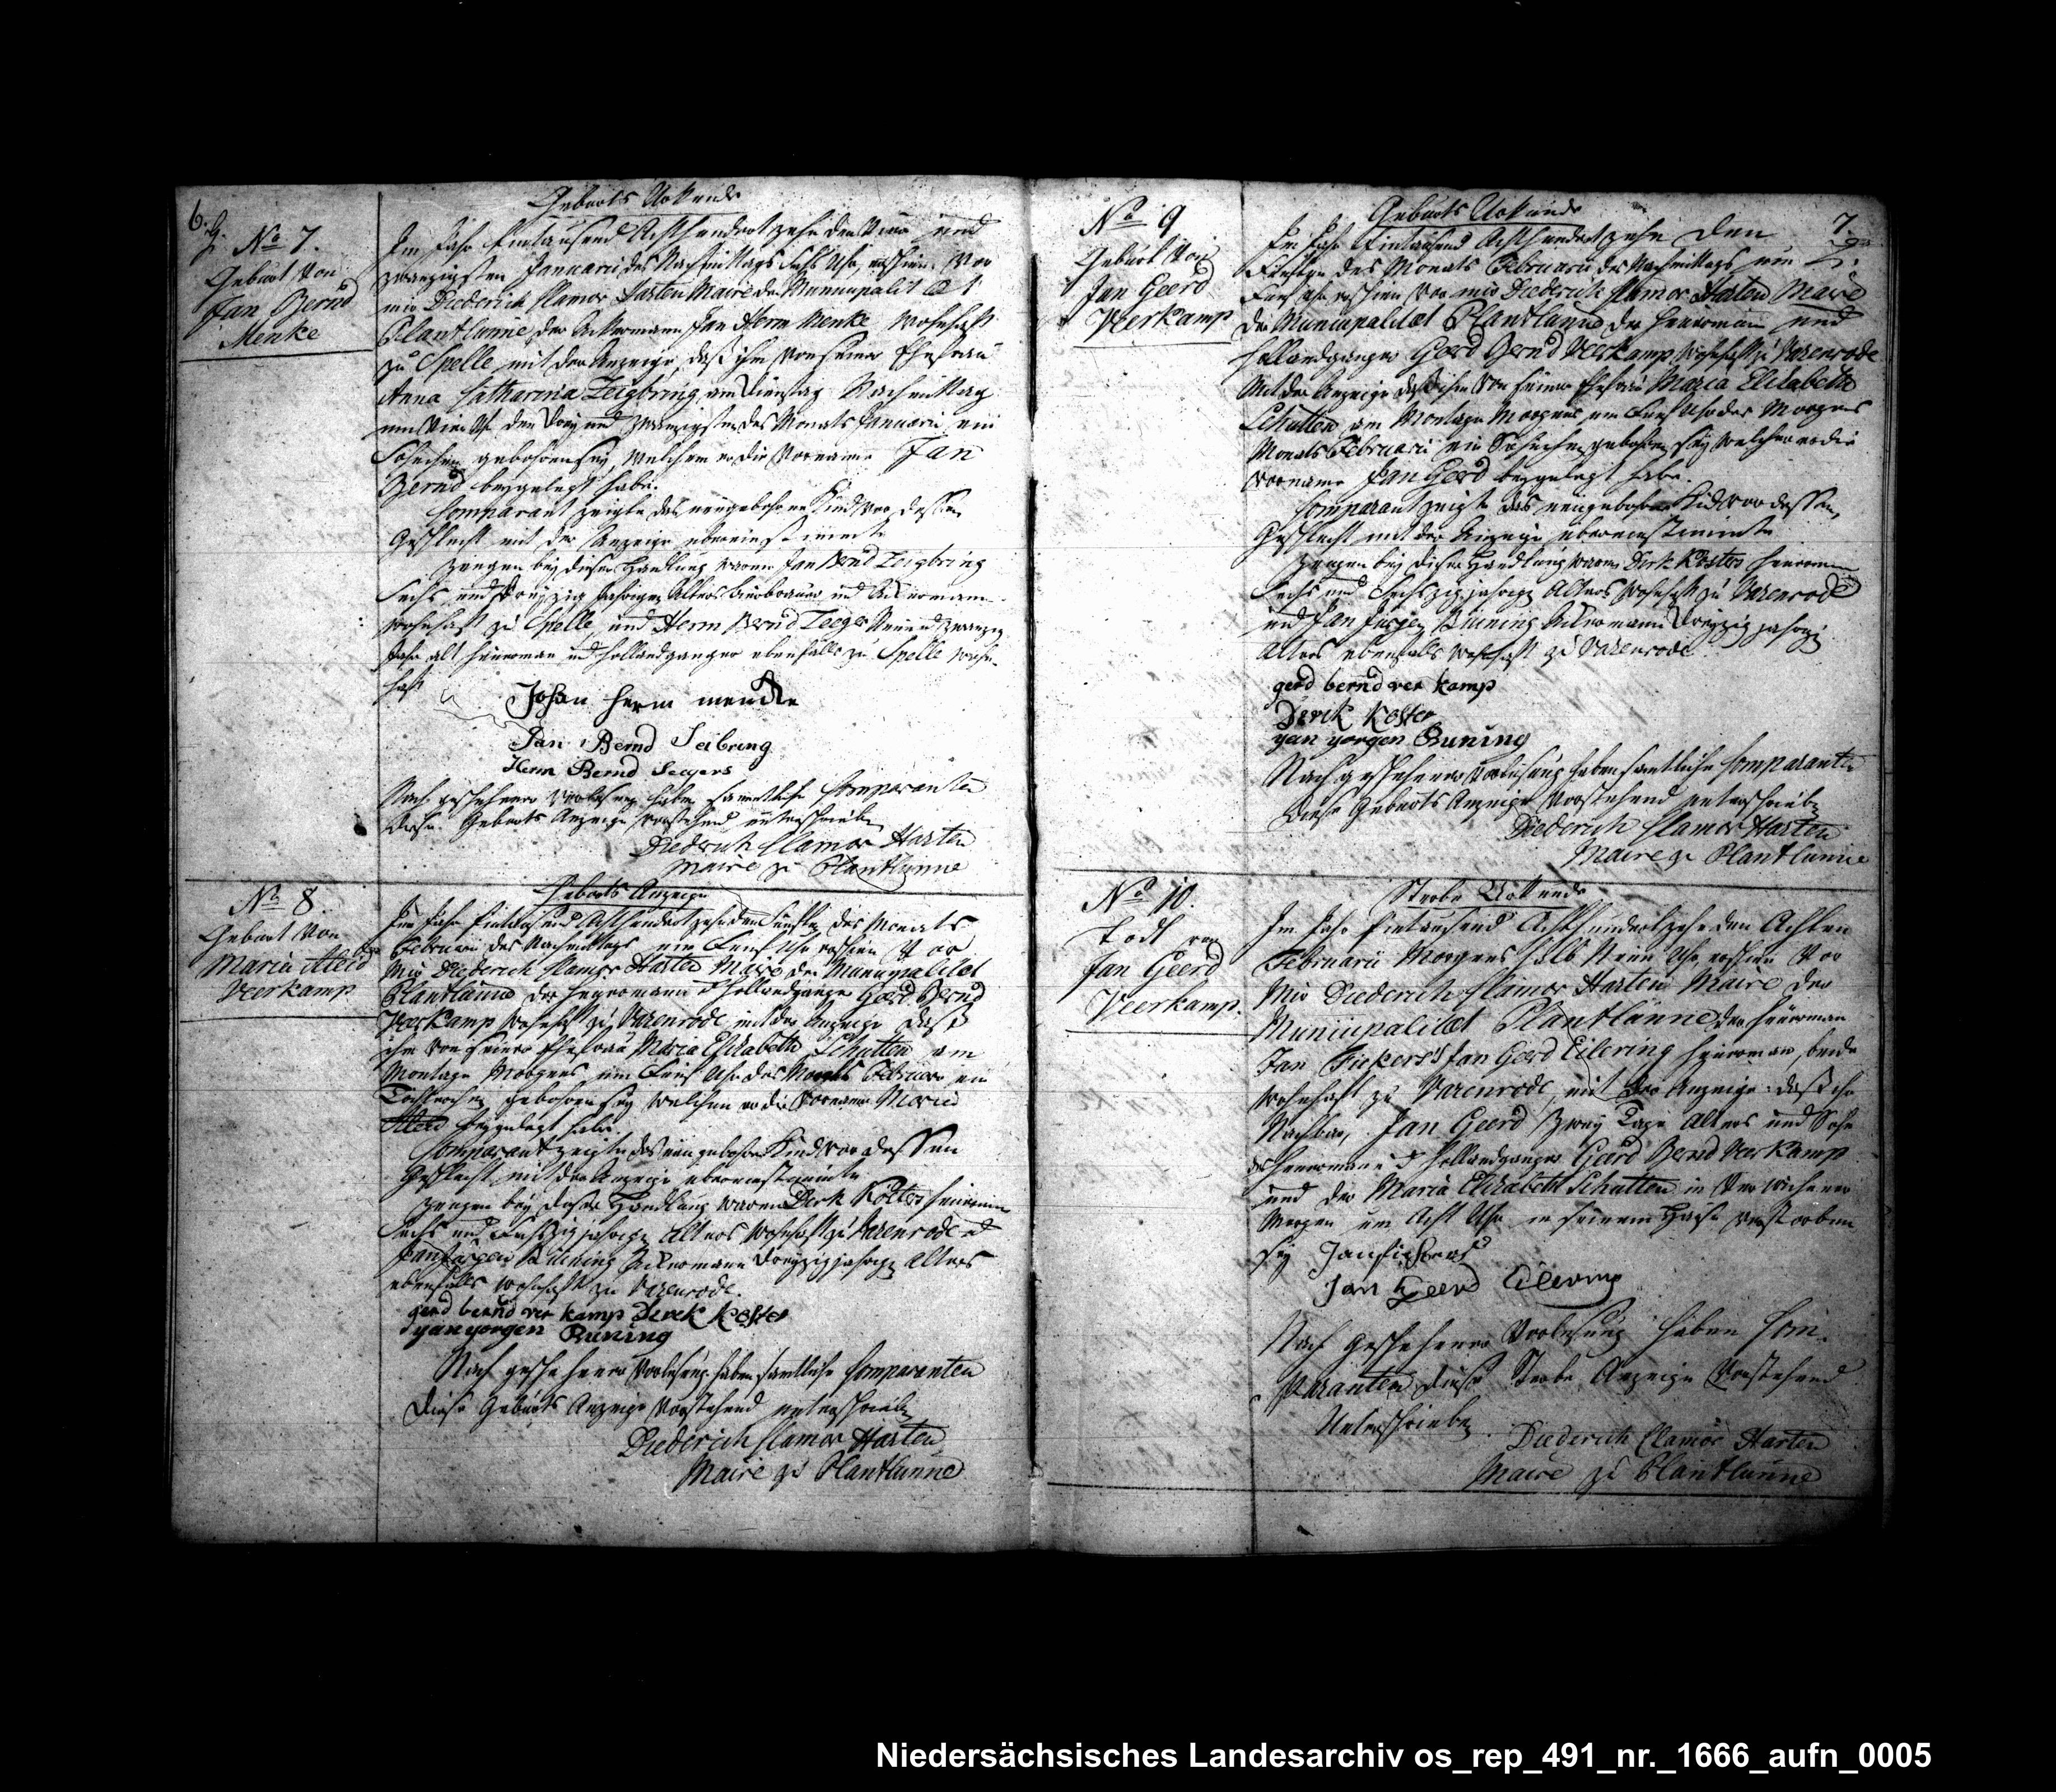 6.
No 7.
Geburt von
Jan Bernd
Menke
Geburts Urkunde
Im Jahr Eintausend Achthundert zehn den Vier und
zwanzigsten Januarii des Nachmittags Uhr, erschien Vor
mir Diederich Clamor Harten Maire der Municipalitæt
Plantlünne der Ackermann Jan Herm Menke wohnhaft
zu Spelle mit der Anzeige, daß ihm von seiner Ehefrau
Anna Catharina am Dienstag Nachmittag
um Vier Uhr den Drey und zwanzigsten des Monats Januarii ein
Söhnchen gebohren sey, welchem er die Vorname Jan
Bernd beygelegt habe.
Comparant zeigte das neugebohrne Kind vor, dessen
Geschlecht mit der Anzeige übereinstimmte
Zeugen bey dieser Handlung waren Jan Bernd
Sechs und jährigen Alters und Ackermann
wohnhaft zu Spelle, und Herm Bernd Neun und zwanzig
Jahr alt Heuermann und Hollandgänger ebenfalls zu Spelle wohn-
haft
Johan herm mencke
Jan Bernd Seibring
Herm Bernd Seegers
Nach geschehener Vorlesung haben sämtliche Comparenten
diese Geburts Anzeige Vorstehend unterschrieben
Diederich Clamor Harten
Maire zu Plantlünne
No 8.
Geburt von
Maria Aleid
Veerkamp
Geburts Anzeige
Im Jahr Eintausend Achthundert zehn den Fünften des Monats
Februarii des Nachmittags um Fünf Uhr erschien Vor
Mir Diederich Clamor Harten Maire der Municipalitæt
Plantlünne der Heuermann & Hollandgänger Gerd Bernd
Veerkamp wohnhaft zu Varenrode, mit der Anzeige daß
ihm von seiner Ehefrau Maria Elisabeth Schutten am
Montage Morgens um Fünf Uhr des Februarii ein
Töchterchen gebohren sey welchem er die Vorname Maria
Aleid beygelegt habe.
Comparant zeigte das neugebohrne Kind vor dessen
Geschlecht mit der Anzeige übereinstimmte
Zeugen bey dieser Handlung waren Dirk Kösters Heuermann
Sechs und Sechszig jährigen Alters wohnhaft zu Varenrode &
Jan Jürgen Buning Ackermann Dreyzig jährigen Alters
ebenfalls wohnhaft zu Varenrode.
gerd bernd ver kamp Derck Koster
yan yorgen Buning
Nach geschehener Vorlesung haben sämtliche Comparenten
diese Geburts Anzeige Vorstehend unterschrieben
Diederich Clamor Harten
Maire zu Plantlünne
7.
No 9
Geburt von
Jan Geerd
Veerkamp
Geburts Urkunde
Im Jahr Eintausend Achthundert zehn den
Fünften des Monats Februarii des Nachmittags um
Fünf Uhr erschien Vor mir Diederich Clamor Harten Maire
der Municipalitæt Plantlünne der Heuermann und
Hollandgänger Gerd Bernd Veerkamp wohnhaft zu Varenrode
Mit der Anzeige daß ihm von seiner Ehefrau Maria Elisabeth
Schutten am Montage Morgens um Fünf Uhr des Morgens
Monats Februarii ein Söhnchen gebohren sey welchem er die
Vorname Jan Gerd beygelegt habe.
Comparant zeigte das neugebohrne Kind vor dessen
Geschlecht mit der Anzeige übereinstimmte
Zeugen bey dieser Handlung waren Dirk Kösters Heuermann
Sechs und Sechszig jährigen Alters wohnhaft zu Varenrode
und Jan Jürgen Buning Ackermann Dreyzig jährigen
Alters ebenfals wohnhaft zu Varenrode
gerd bernd ver kamp
Derck Koster
yan yorgen Buning
Nach geschehener Vorlesung haben sämtliche Comparenten
diese Geburts Anzeige Vorstehend unterschrieben
Diederich Clamor Harten
Maire zu Plantlünne
No 10.
Todt von
Jan Geerd
Veerkamp.
Sterbe Urkunde
Im Jahr Eintausend Achthundert zehn den Achten
Februarii Morgens halb Neun Uhr, erschien Vor
Mir Diederich Clamor Harten Maire der
Municipalitæt Plantlünne der Heuermann
Jan & Jan Geerd Eilering Heuermann, beide
wohnhaft zu Varenrode, mit der Anzeige: daß ihr
Nachbar, Jan Geerd Zwey Tage Alters und Sohn
des Heuermann & Hollandgänger Gerd Bernd Veerkamp
und der Maria Elisabeth Schutten in
Morgen um Acht Uhr in seinem Hause verstorben
sey
Jan Geerd Eilering
Nach geschehener Vorlesung haben Com-
paranten diese Sterbe Anzeige Vorstehend
Unterschrieben.
Diederich Clamor Harten
Maire zu Plantlünne
Niedersächsisches Landesarchiv os_rep_491_nr._1666_aufn_0005